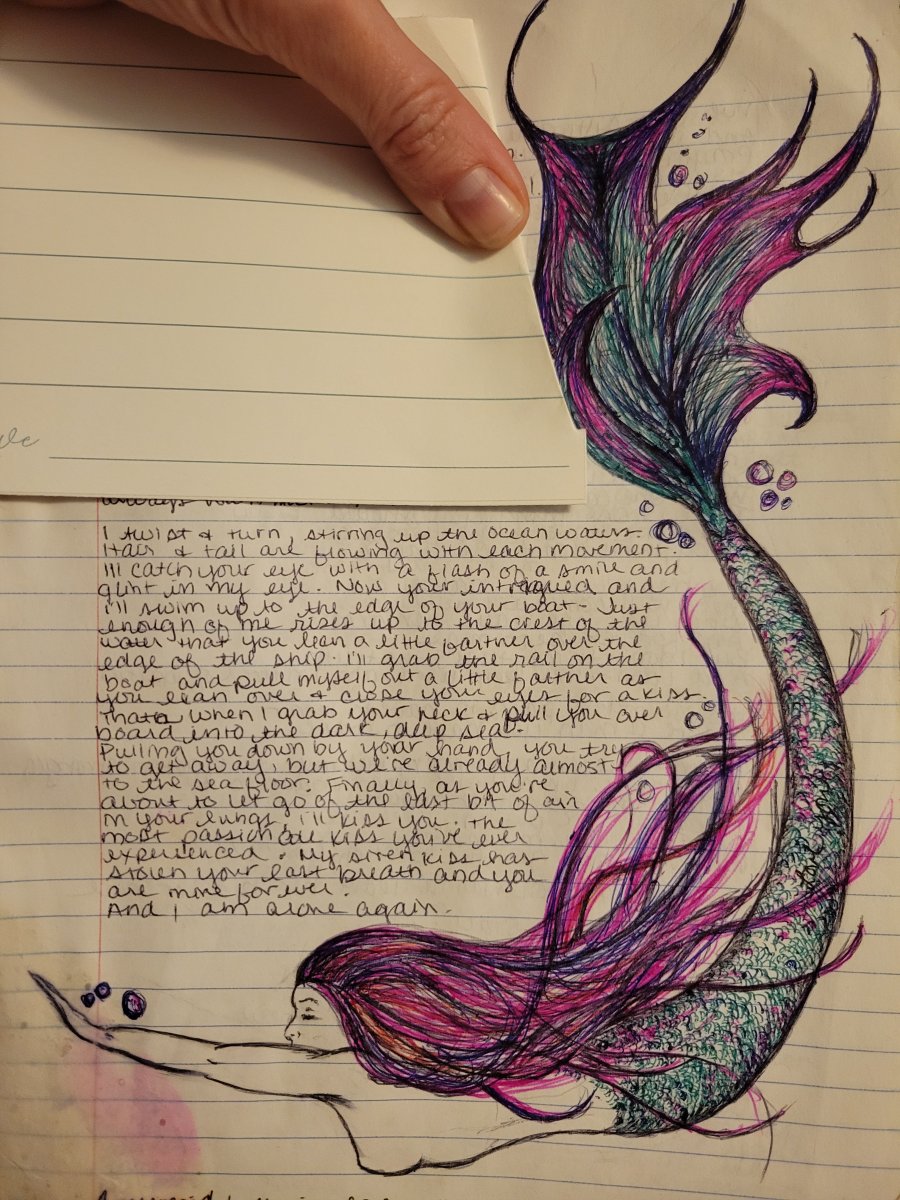 I twist & turn, stirring up the ocean waters.
Hair & tail are flowing with each movement.
I'll catch your eye with a flash of a smile and
glint in my eye. Now your intreagued and
i'll swim up to the edge of your boat - Just
enough of me rises up to the crest of the
water that you lean a little farther over the
edge of the ship. I'll grab the rail on the
boat and pull myself out a little farther as
you lean over & close your eyes for a kiss.
thats when I grab your neck & pull you over
board into the dark, deep sea.
Pulling you down by your hand, you try
to get away, but we're already almost
to the sea floor. Finally as you're
about to let go of the last bit of air
in your lungs, i'll kiss you. The
most passionate kiss you've ever
experienced. My siren kiss has
stolen your last breath and you
are mine forever.
And I am alone again.